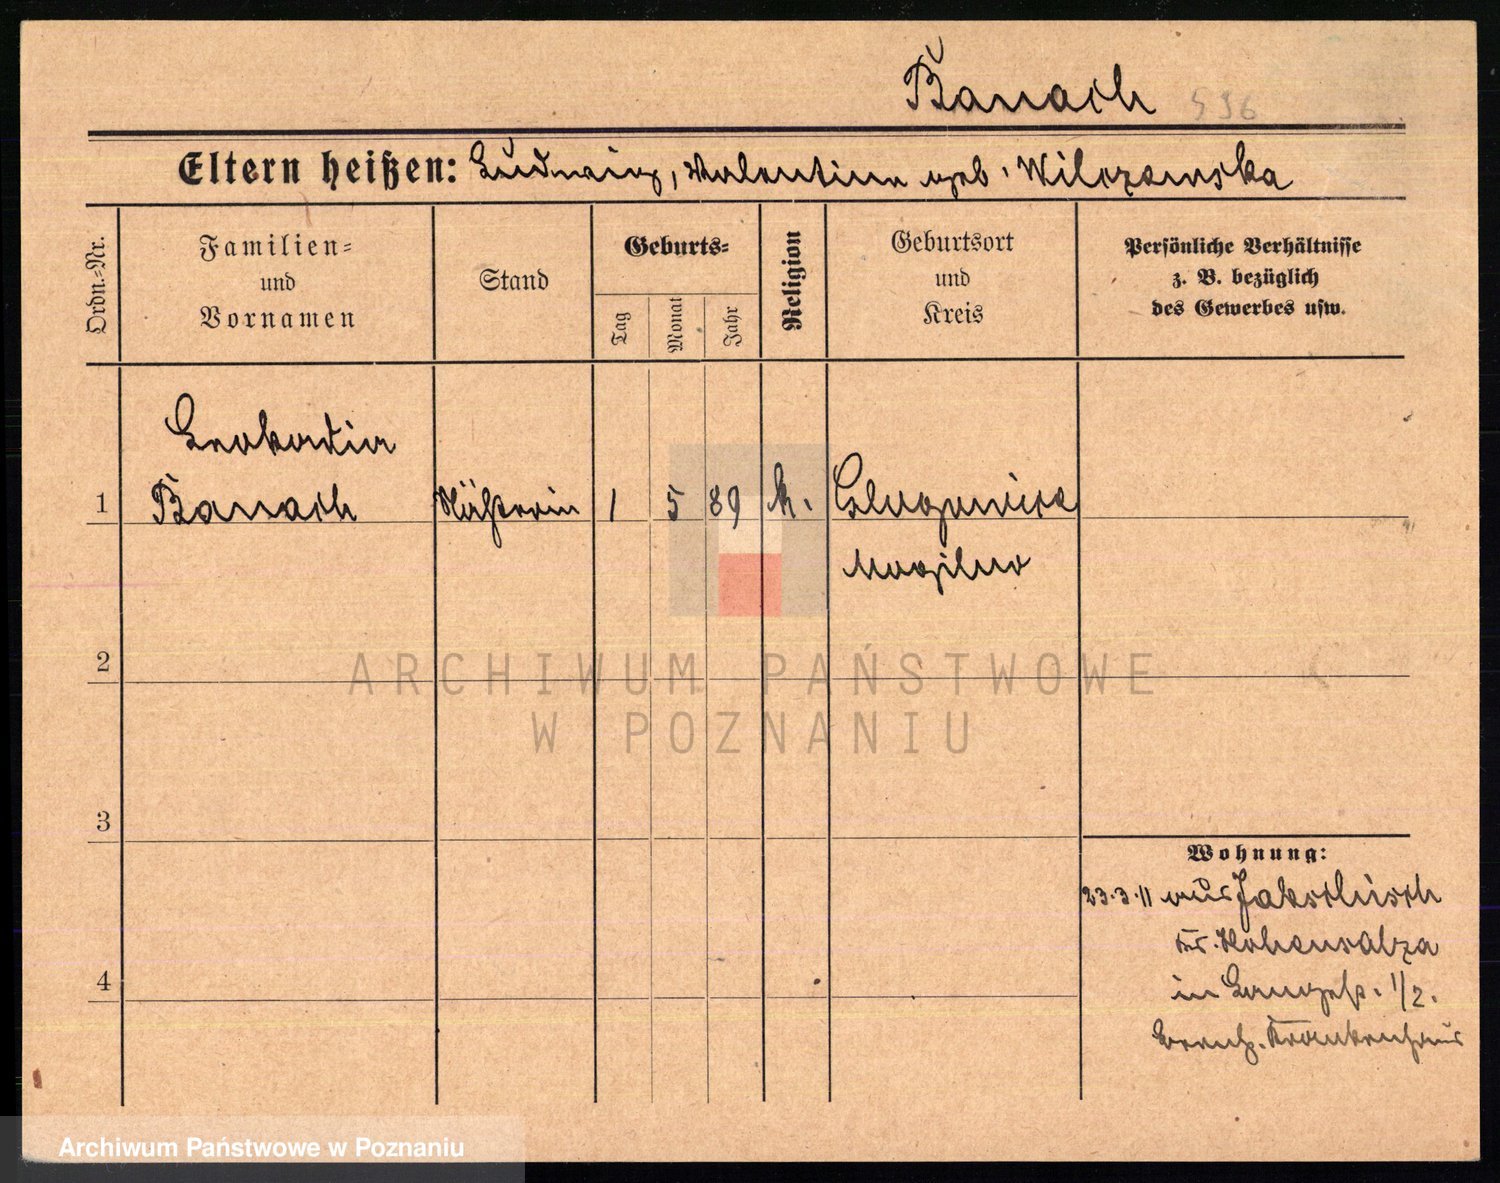 Banach 536
Eltern heißen: Ludwig, Valentina geb. Wilczewska
Ordn.-Nr.
Familien-
und
Vornamen
Stand
Geburts-
Tag
Monat
Jahr
Religion
Geburtsort
und
Kreis
Persönliche Verhältnisse
z. B. bezüglich
des Gewerbes usw.
Leokadia
1 Banach Näherin 1 5 89 k.
Mogilno
2
ARCHIWUM PAŃSTWOWE
W POZNANIU
3
Wohnung:
23.3.11 aus Jakschütsch
Kr. Hohensalza
in Langestr. 1/2.
4
Krankenhaus
Archiwum Państwowe w Poznaniu